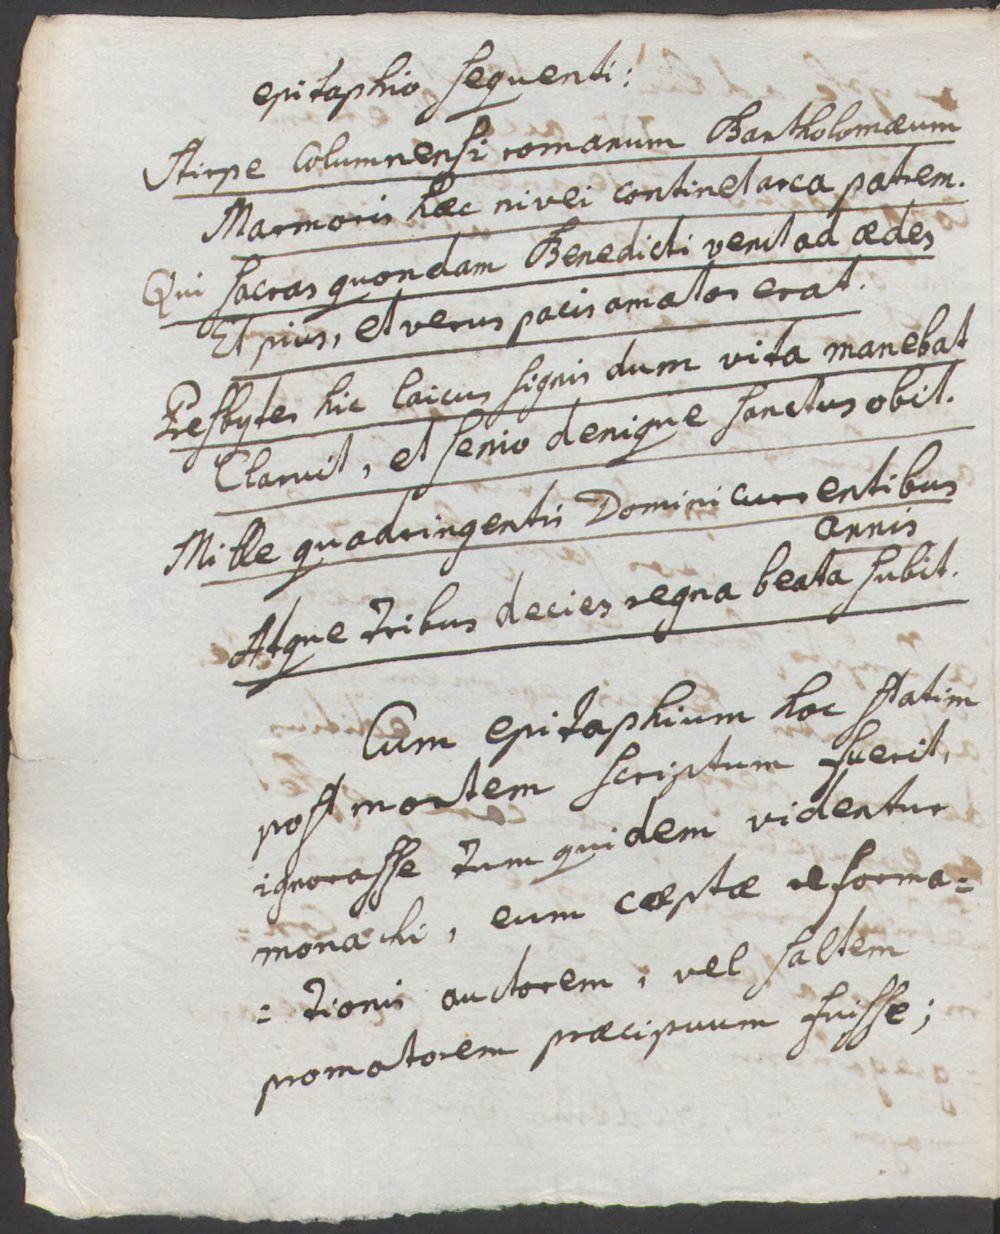 epitaphio sequenti:
Stirpe Columnensi romanum Bartholomæum
Marmoris hæc nivei continet arca patrem.
Qui sacras quondam Benedicti venit ad ædes
Et pius, et verus pacis amator erat.
Presbyter hic laicus signis dum vita manebat
Claruit, et senio denique sanctus obit.
Mille quadringentis Domini currentibus
annis
Atque tribus decies regna beata subit.
Cum epitaphium hoc statim
post mortem scriptum fuerit,
ignorasse tum quidem videntur
monachi, eum cæptæ reforma=
=tionis auctorem, vel saltem
promotorem præcipuum fuisse;